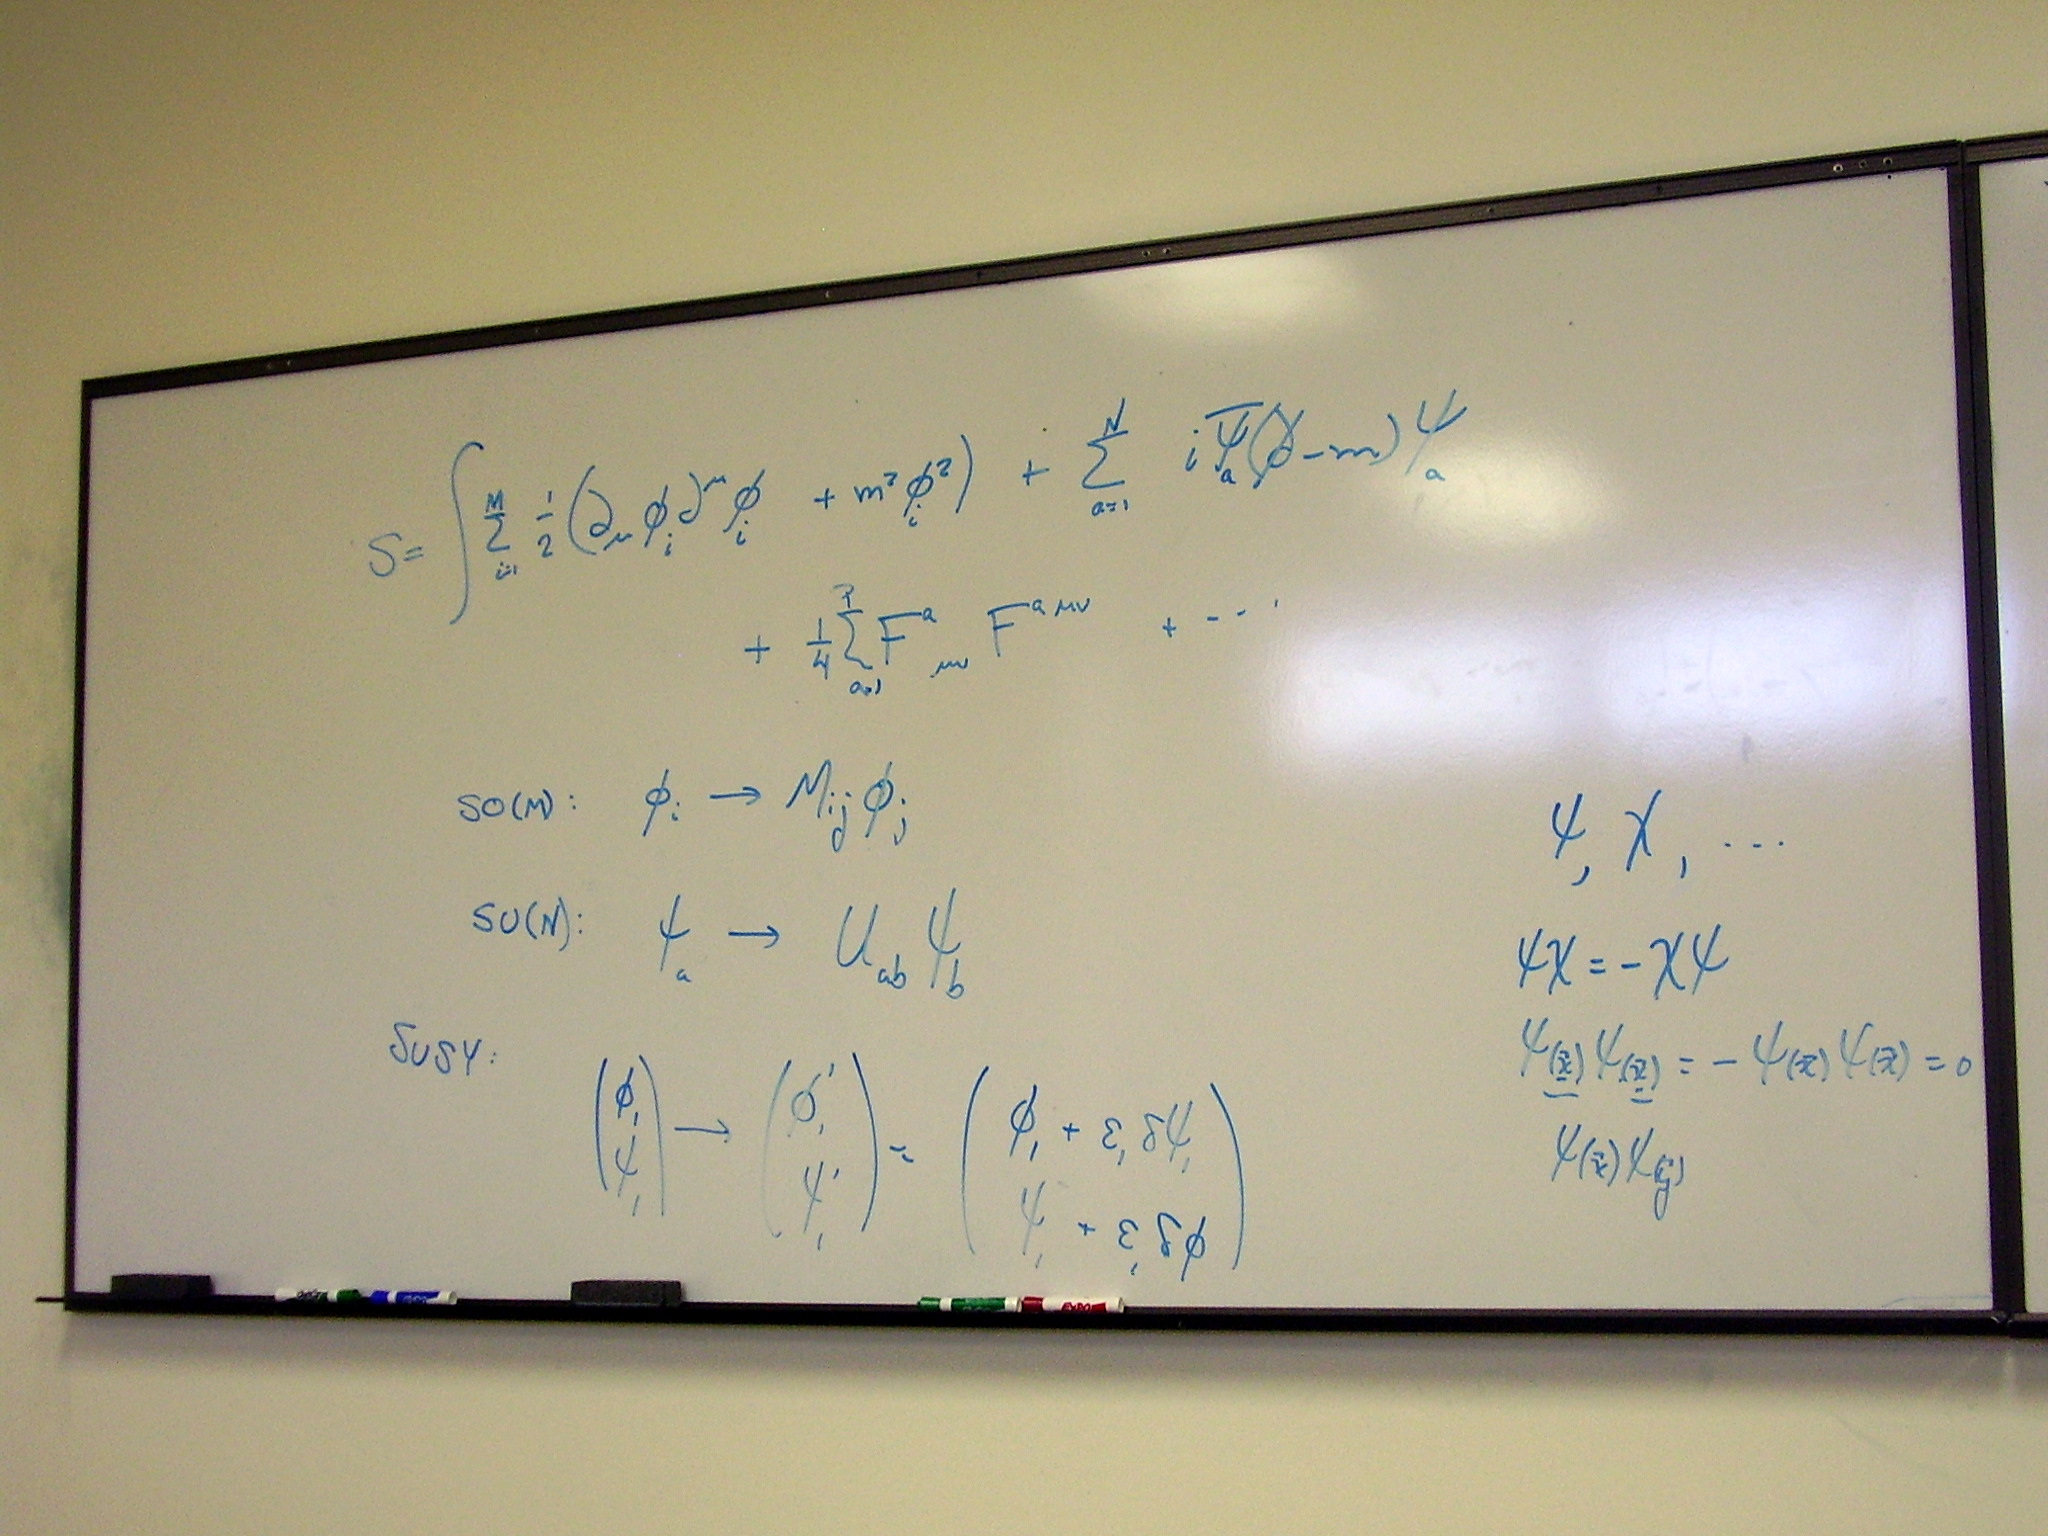 S = ∫ Σ_{i=1}^{M} 1/2 (∂_μ φ_i ∂^μ φ_i + m² φ_i²) + Σ_{a=1}^{N} i ψ̄_a (∂̸ - m) ψ_a
+ 1/4 Σ_{a=1}^{P} F^a_{μν} F^{a μν} + ...
SO(M): φ_i → M_{ij} φ_j
SU(N): ψ_a → U_{ab} ψ_b
SUSY: (φ_1 ψ_1) → (φ_1' ψ_1') = (φ_1 + ε_1 δψ_1
ψ_1 + ε_1 δφ)
ψ, χ, ...
ψχ = -χψ
ψ(x⃗)ψ(x⃗) = -ψ(x⃗)ψ(x⃗) = 0
ψ(x⃗)ψ(y⃗)
EXPO